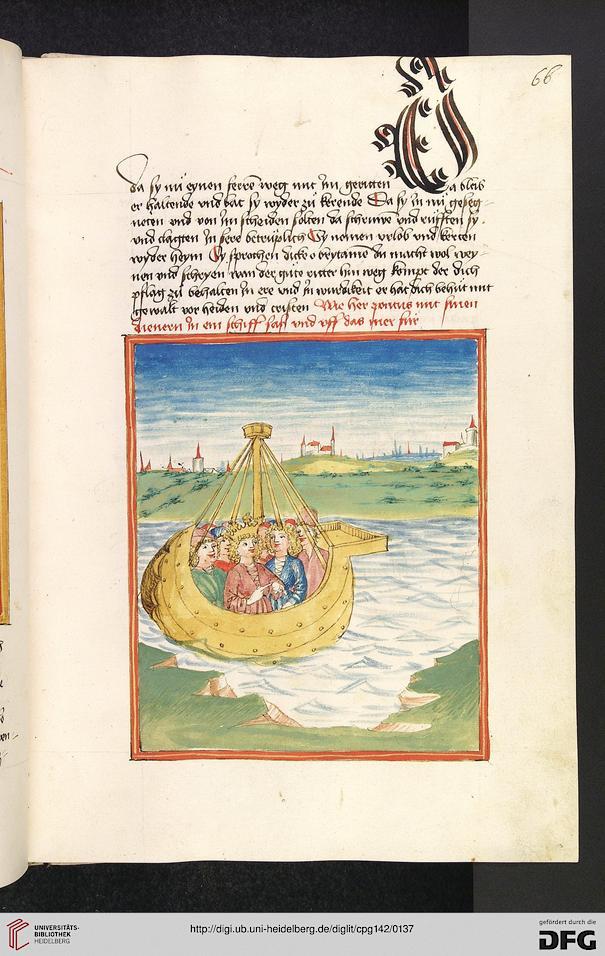 66
da sy nů eynen ferrē weg mit jm geritten Da bleib
er haltende vnd bat sy wyder zů kerende Da sy jn nů geseg-
neten vnd von jm scheiden solten da schruwe vnd růfften sy.
vnd clagten jn sere betrüplich Sy nomen vrlob vnd kerten
wyder heym Sy sprochen dicke o brytanie du macht wol wey-
nen vnd schryen wan der gůte ritter hin weg kompt der dich
pflag zů behalten in ere vnd jn wurdikeit er hat dich behüt mit
gewalt vor heiden vnd cristen Wie her pontus mit sinen
dienern jn ein schiff sass vnd vff das mer fůr
UNIVERSITÄTS-
BIBLIOTHEK
HEIDELBERG
http://digi.ub.uni-heidelberg.de/diglit/cpg142/0137
gefördert durch die
DFG